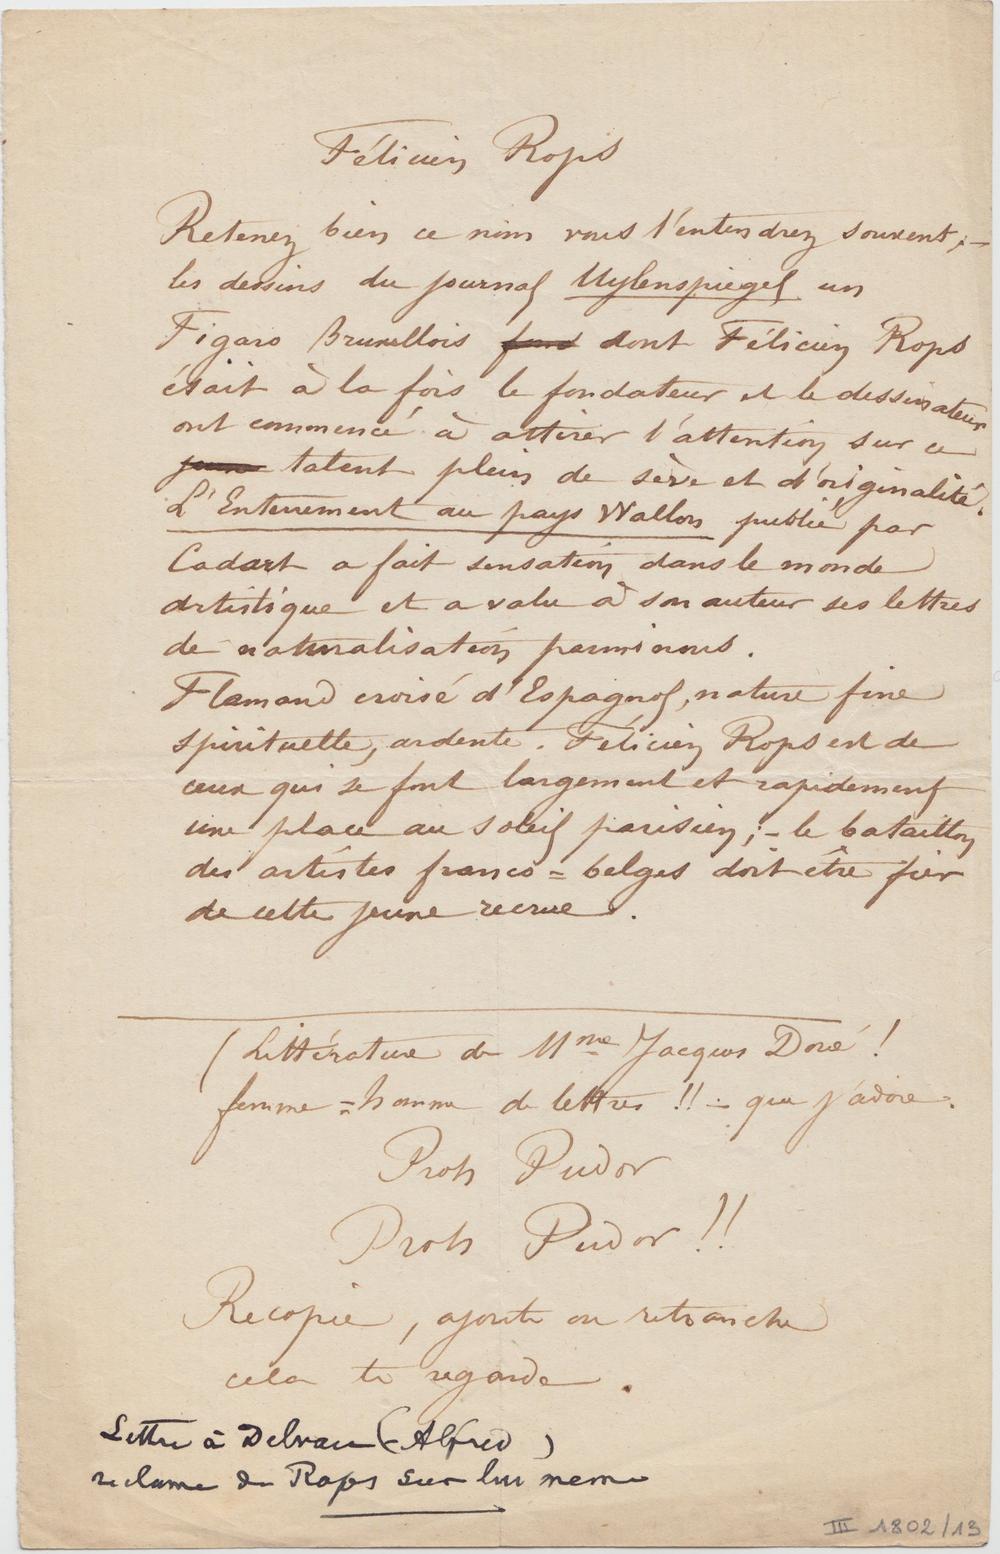 Félicien Rops
Retenez bien ce nom vous l'entendrez souvent; –
les dessins du journal Uylenspiegel un
Figaro Bruxellois dont Félicien Rops
était à la fois le fondateur et le dessinateur
ont commencé à attirer l'attention sur ce
talent plein de sève et d'originalité.
L'Enterrement au pays Wallon publié par
Cadart a fait sensation dans le monde
artistique et a valu à son auteur ses lettres
de naturalisation parmi nous.
Flamand croisé d'Espagnol, nature fine
spirituelle, ardente. Félicien Rops est de
ceux qui se font largement et rapidement
une place au soleil parisien; – le bataillon
des artistes franco = belges doit être fier
de cette jeune recrue.
(Littérature de Mme Jacques Doré!
femme = homme de lettres!! – que j'adore.
Proh Pudor
Proh Pudor!!
Recopie, ajoute ou retranche
cela te regarde.
Lettre à Delvau (Alfred)
reclame de Rops sur lui meme
III 1802/13